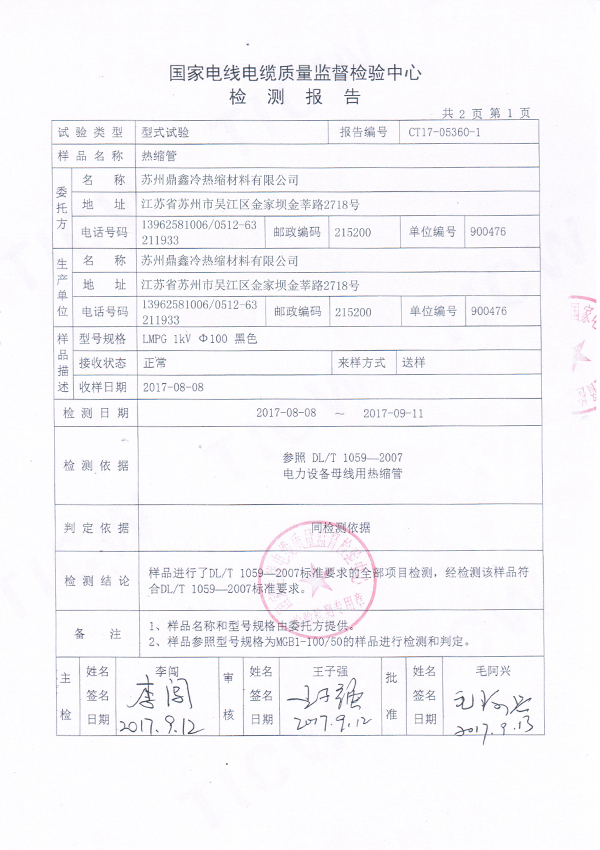 国家电线电缆质量监督检验中心
检 测 报 告
共 2 页 第 1 页
试 验 类 型 型式试验 报告编号 CT17-05360-1
样 品 名 称 热缩管
委托方
名 称 苏州鼎鑫冷热缩材料有限公司
地 址 江苏省苏州市吴江区金家坝金莘路2718号
电话号码 13962581006/0512-63
211933 邮政编码 215200 单位编号 900476
生产单位
名 称 苏州鼎鑫冷热缩材料有限公司
地 址 江苏省苏州市吴江区金家坝金莘路2718号
电话号码 13962581006/0512-63
211933 邮政编码 215200 单位编号 900476
样品描述
型号规格 LMPG 1kV Φ100 黑色
接收状态 正常 来样方式 送样
收样日期 2017-08-08
检 测 日 期 2017-08-08 ～ 2017-09-11
检 测 依 据 参照 DL/T 1059—2007
电力设备母线用热缩管
判 定 依 据 同检测依据
检 测 结 论 样品进行了DL/T 1059—2007标准要求的全部项目检测，经检测该样品符
合DL/T 1059—2007标准要求。
备 注 1、样品名称和型号规格由委托方提供。
2、样品参照型号规格为MGB1-100/50的样品进行检测和判定。
主检 姓名 李闯 审核 姓名 王子强 批准 姓名 毛阿兴
签名 李闯 签名 王子强 签名 毛阿兴
日期 2017.9.12 日期 2017.9.12 日期 2017.9.13